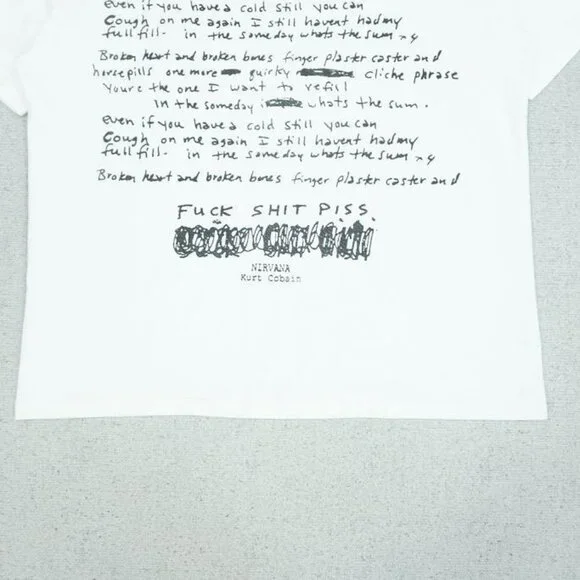 even if you have a cold still you can
Cough on me again I still havent had my
full fill. in the someday whats the sum x4
Broken heart and broken bones finger plaster caster and
horsepills one more quirky cliche phrase
You're the one I want to refill
In the someday whats the sum.
even if you have a cold still you can
Cough on me again I still havent had my
full fill. in the someday whats the sum x4
Broken heart and broken bones finger plaster caster and
FUCK SHIT PISS.
NIRVANA
Kurt Cobain